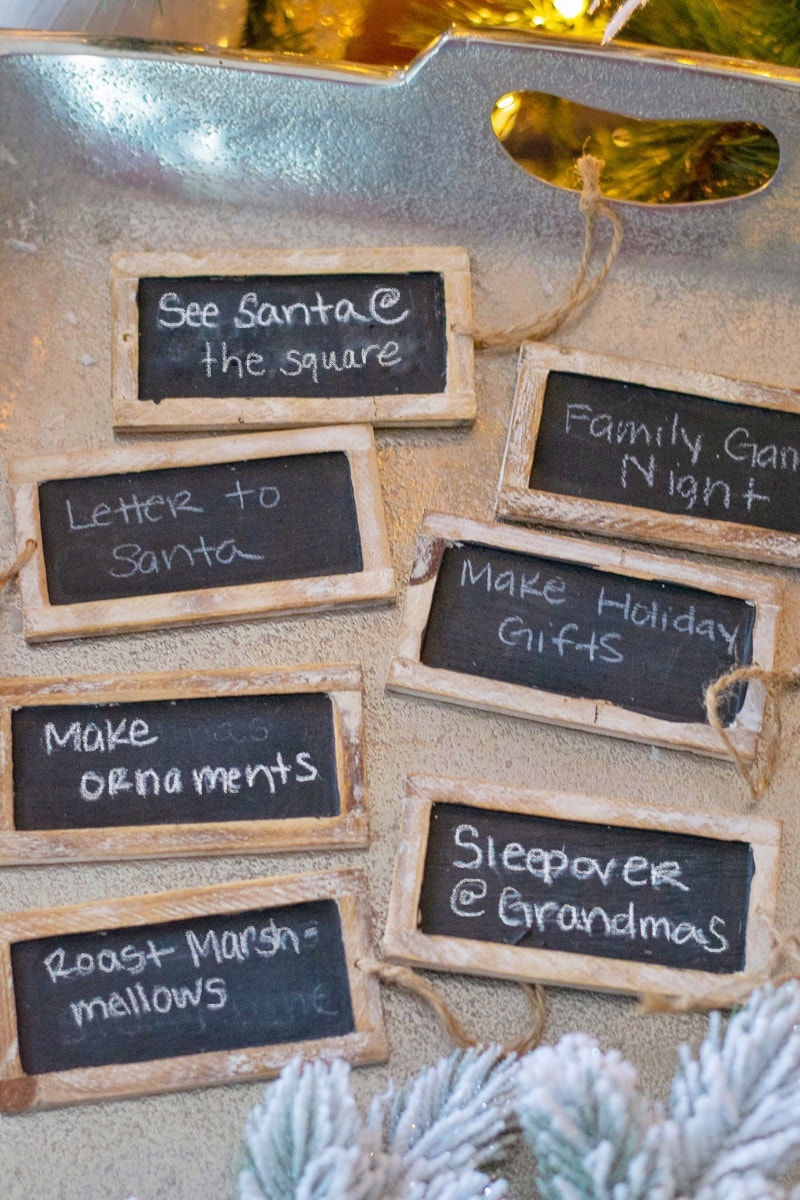 See Santa @
the square
Family Gam
Night
Letter to
Santa
Make Holiday
Gifts
Make
ornaments
Sleepover
@ Grandmas
Roast Marsh=
mellows